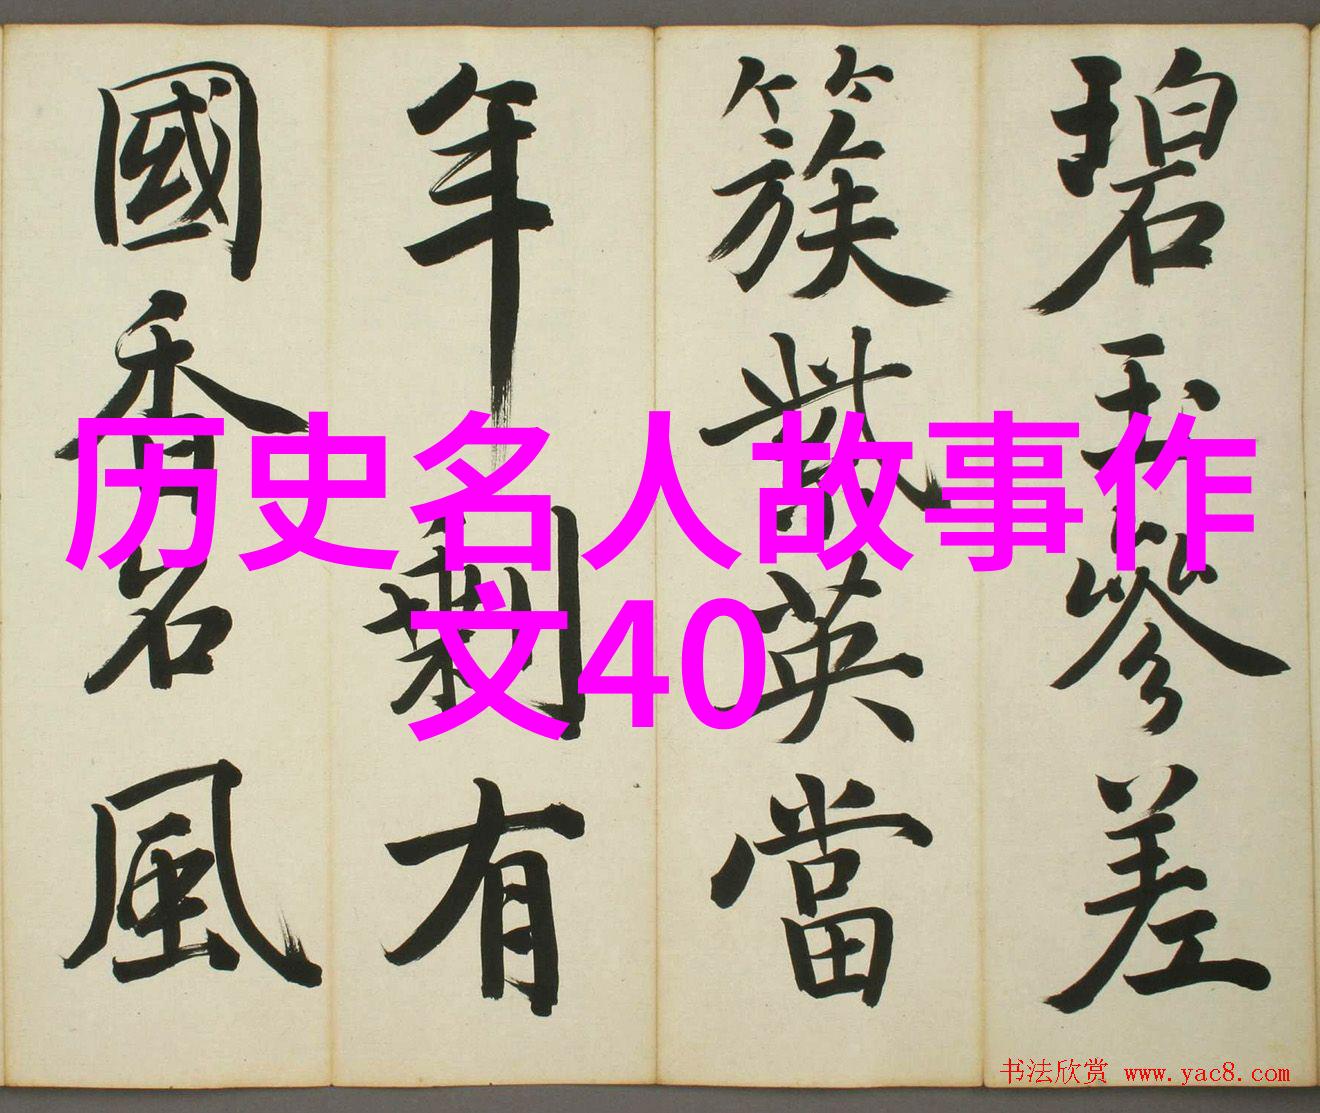 碧玉參差
簇紫英當
年剩有
國香名風
历史名人故事作
文40
书法欣赏 www.yac8.com